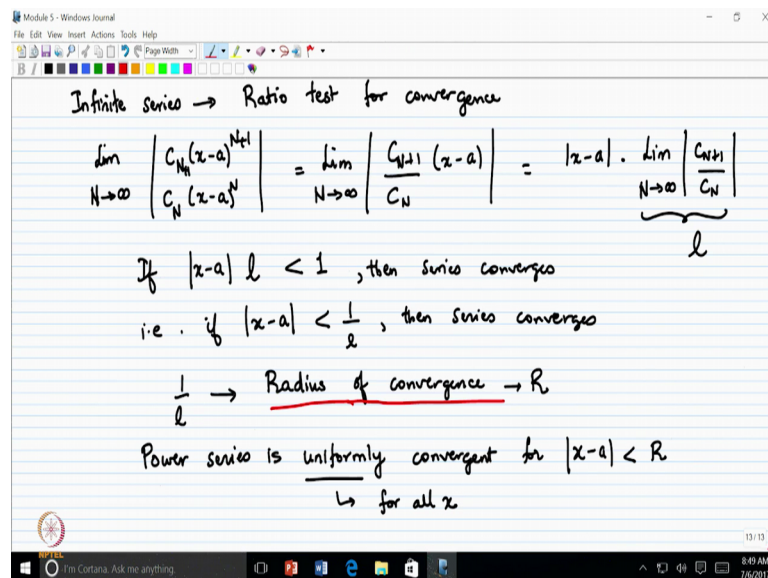 Module 5 - Windows Journal
File Edit View Insert Actions Tools Help
Page Width
B I
Infinite series → Ratio test for convergence
Lim N→∞ | C_{N+1} (x-a)^{N+1} / C_N (x-a)^N | = Lim N→∞ | C_{N+1} / C_N (x-a) | = |x-a| . Lim N→∞ | C_{N+1} / C_N |
l
If |x-a| l < 1 , then series converges
i.e. if |x-a| < 1/l , then series converges
1/l → Radius of convergence → R
Power series is uniformly convergent for |x-a| < R
↳ for all x
NPTEL
13/13
I'm Cortana. Ask me anything.
8:49 AM